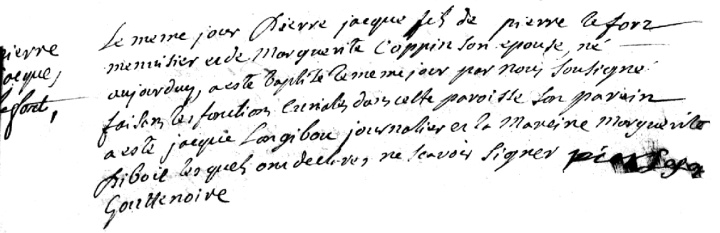 Le meme jour Pierre jacque fils de pierre lefort
pierre
jacque,
lefort,
menuisier et de Marguerite Coppin son epouse, né
aujourduy, a esté baptizé le meme jour par nous sousigné
faisant les fonctions curiales dans cette paroisse son parein
a esté jacque Longibou journalier et la Mareine Marguerite
Riboit lesquels ont declarés ne scavoir signer
Gouttenoire